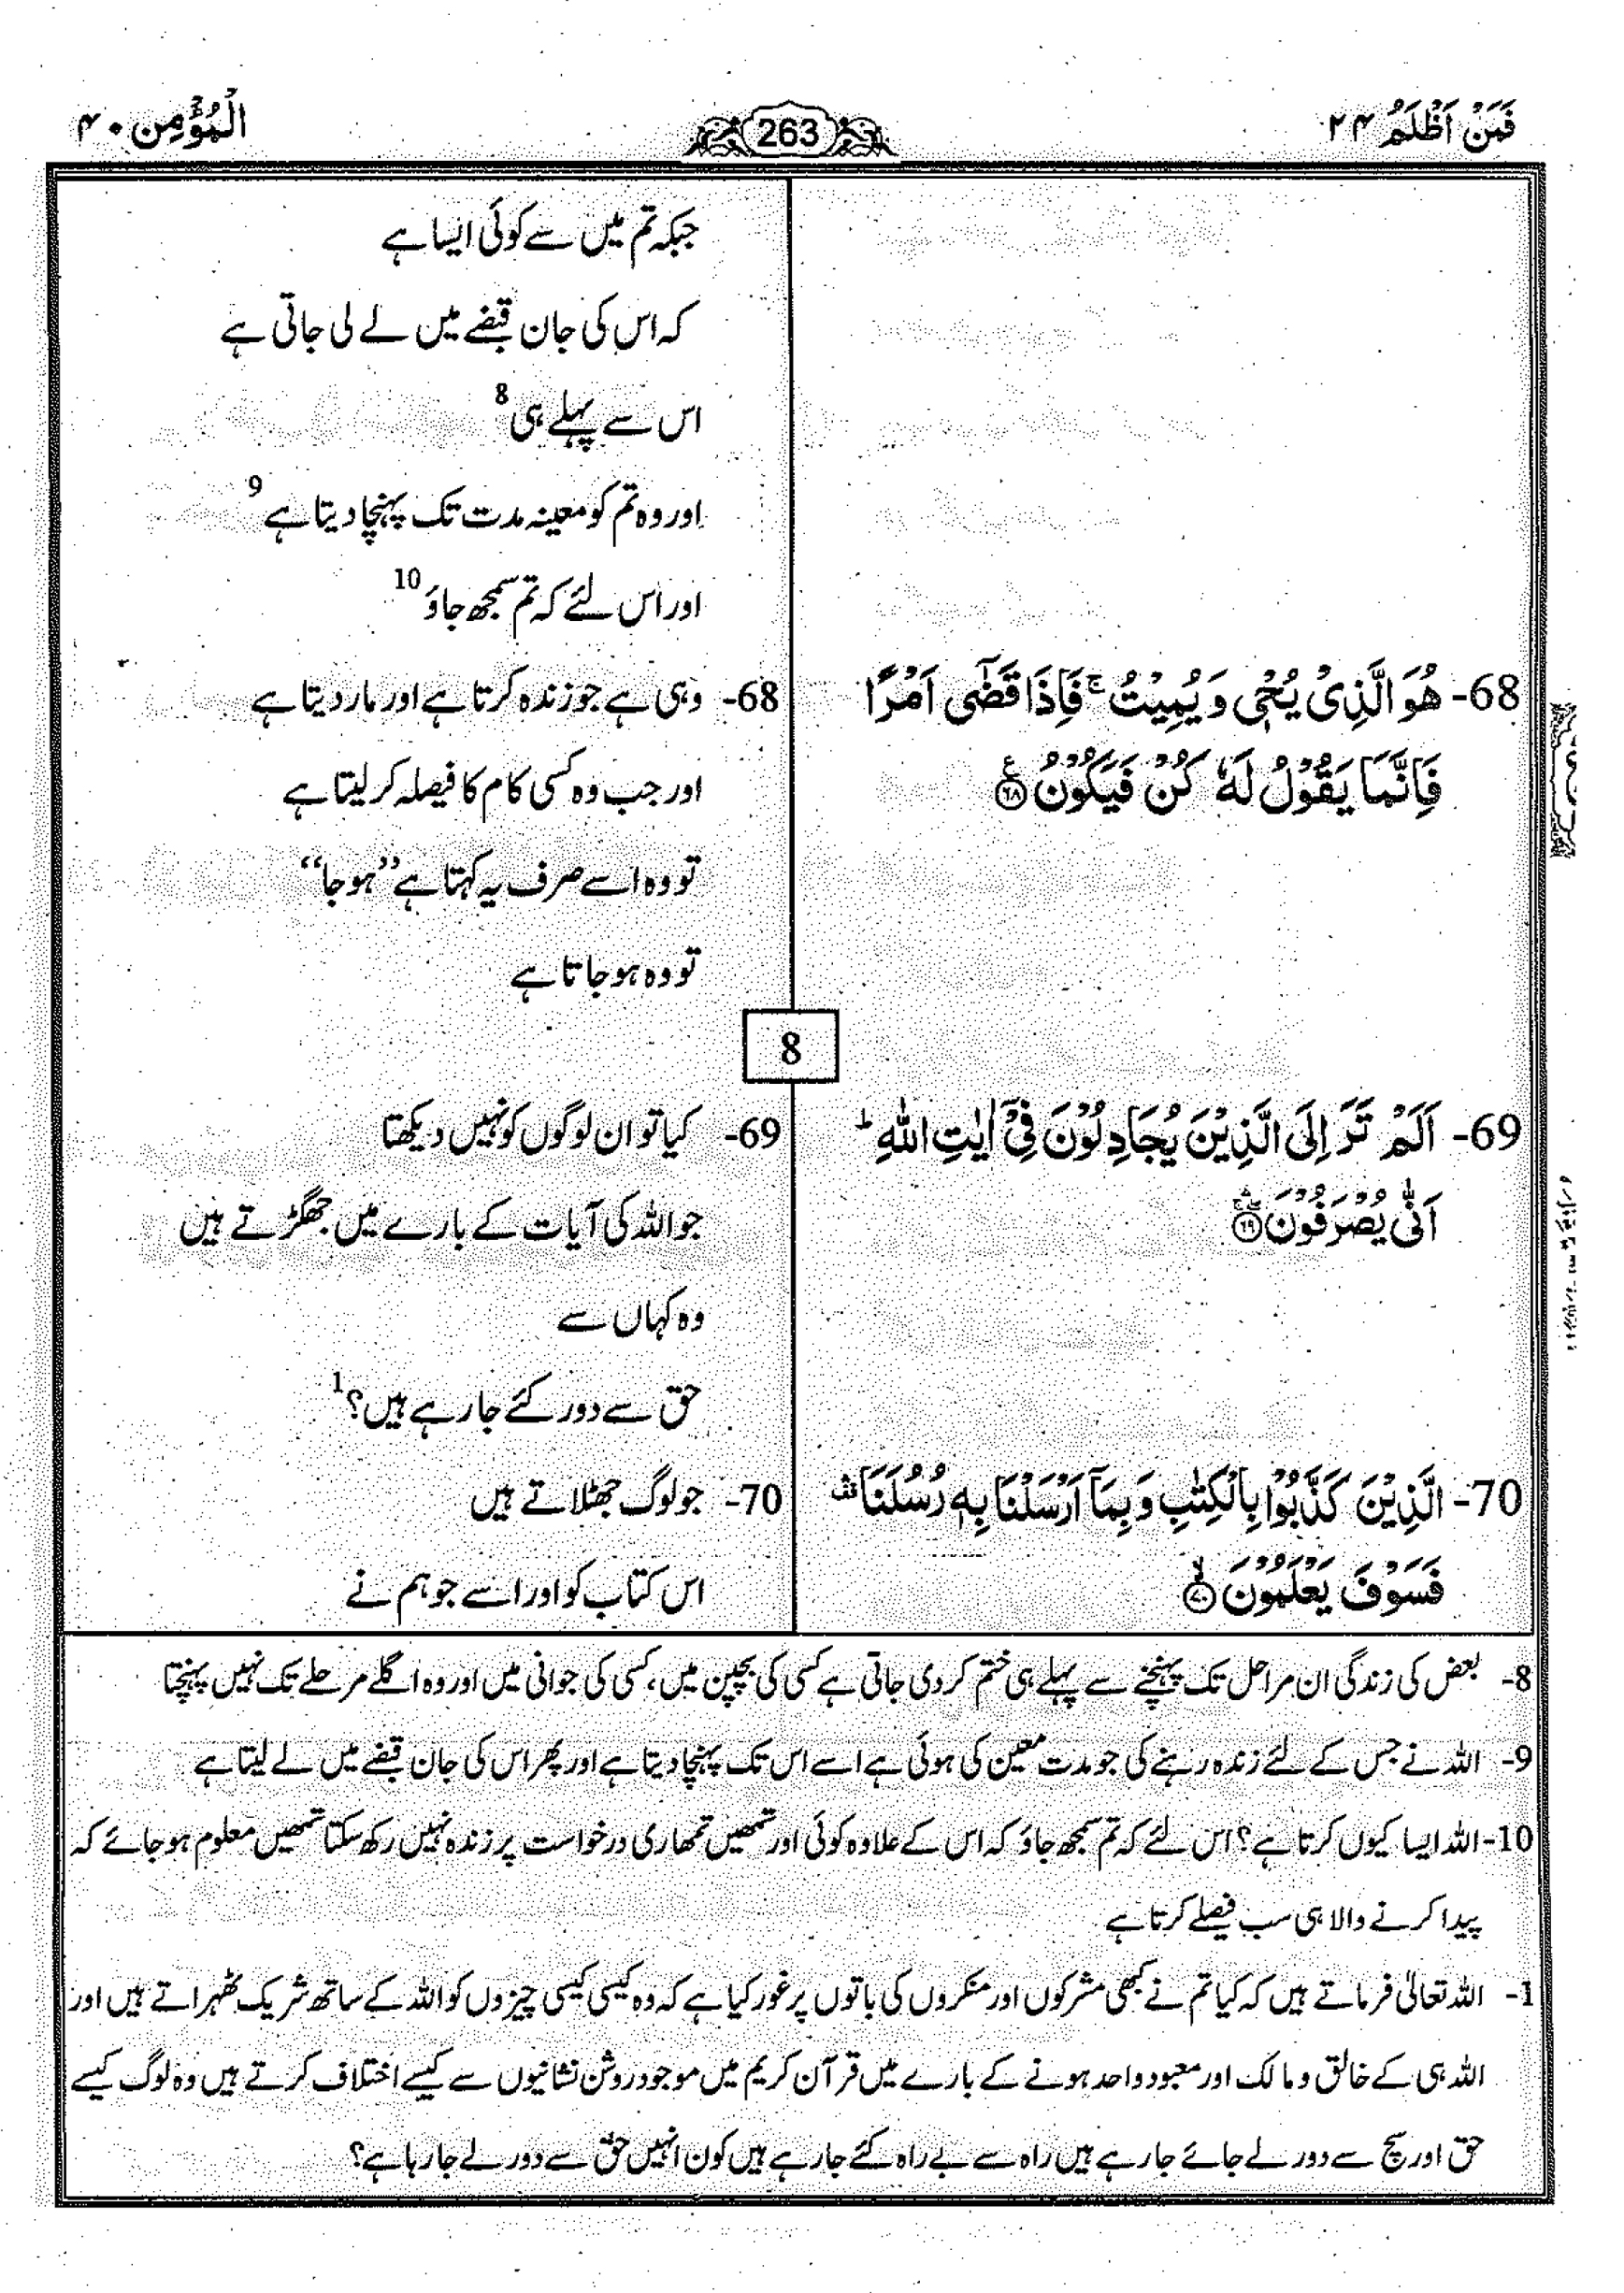 فَمَنْ اَظْلَمُ ۲۴
263
الْمُؤْمِن ۴۰
جبکہ تم میں سے کوئی ایسا ہے
کہ اس کی جان قبضے میں لے لی جاتی ہے
اس سے پہلے ہی 8
اور وہ تم کو معینہ مدت تک پہنچا دیتا ہے 9
اور اس لئے کہ تم سمجھ جاؤ 10
68- هُوَ الَّذِیْ یُحْیٖ وَ یُمِیْتُ ۚ فَاِذَا قَضٰۤی اَمْرًا
فَاِنَّمَا یَقُوْلُ لَهٗ كُنْ فَیَكُوْنُ ﴿۶۸﴾ ع
68- وہی ہے جو زندہ کرتا ہے اور مار دیتا ہے
اور جب وہ کسی کام کا فیصلہ کر لیتا ہے
تو وہ اسے صرف یہ کہتا ہے ’’ہو جا‘‘
تو وہ ہو جاتا ہے
8
69- اَلَمْ تَرَ اِلَی الَّذِیْنَ یُجَادِلُوْنَ فِیْۤ اٰیٰتِ اللّٰهِ ؕ
اَنّٰی یُصْرَفُوْنَ ﴿۶۹﴾
69- کیا تو ان لوگوں کو نہیں دیکھتا
جو اللہ کی آیات کے بارے میں جھگڑتے ہیں
وہ کہاں سے
حق سے دور کئے جا رہے ہیں؟ 1
70- الَّذِیْنَ كَذَّبُوْا بِالْكِتٰبِ وَ بِمَاۤ اَرْسَلْنَا بِهٖ رُسُلَنَا ۛ۫
فَسَوْفَ یَعْلَمُوْنَ ﴿۷۰﴾ ۙ
70- جو لوگ جھٹلاتے ہیں
اس کتاب کو اور اسے جو ہم نے
8- بعض کی زندگی ان مراحل تک پہنچنے سے پہلے ہی ختم کر دی جاتی ہے کسی کی بچپن میں، کسی کی جوانی میں اور وہ اگلے مرحلے تک نہیں پہنچتا
9- اللہ نے جس کے لئے زندہ رہنے کی جو مدت معین کی ہوئی ہے اسے اس تک پہنچا دیتا ہے اور پھر اس کی جان قبضے میں لے لیتا ہے
10- اللہ ایسا کیوں کرتا ہے؟ اس لئے کہ تم سمجھ جاؤ کہ اس کے علاوہ کوئی اور تمھیں تمھاری درخواست پر زندہ نہیں رکھ سکتا تمھیں معلوم ہو جائے کہ
پیدا کرنے والا ہی سب فیصلے کرتا ہے
1- اللہ تعالیٰ فرماتے ہیں کہ کیا تم نے کبھی مشرکوں اور منکروں کی باتوں پر غور کیا ہے کہ وہ کیسی کیسی چیزوں کو اللہ کے ساتھ شریک ٹھہراتے ہیں اور
اللہ ہی کے خالق و مالک اور معبود واحد ہونے کے بارے میں قرآن کریم میں موجود روشن نشانیوں سے کیسے اختلاف کرتے ہیں وہ لوگ کیسے
حق اور سچ سے دور لے جائے جا رہے ہیں راہ سے بے راہ کئے جا رہے ہیں کون انہیں حق سے دور لے جا رہا ہے؟